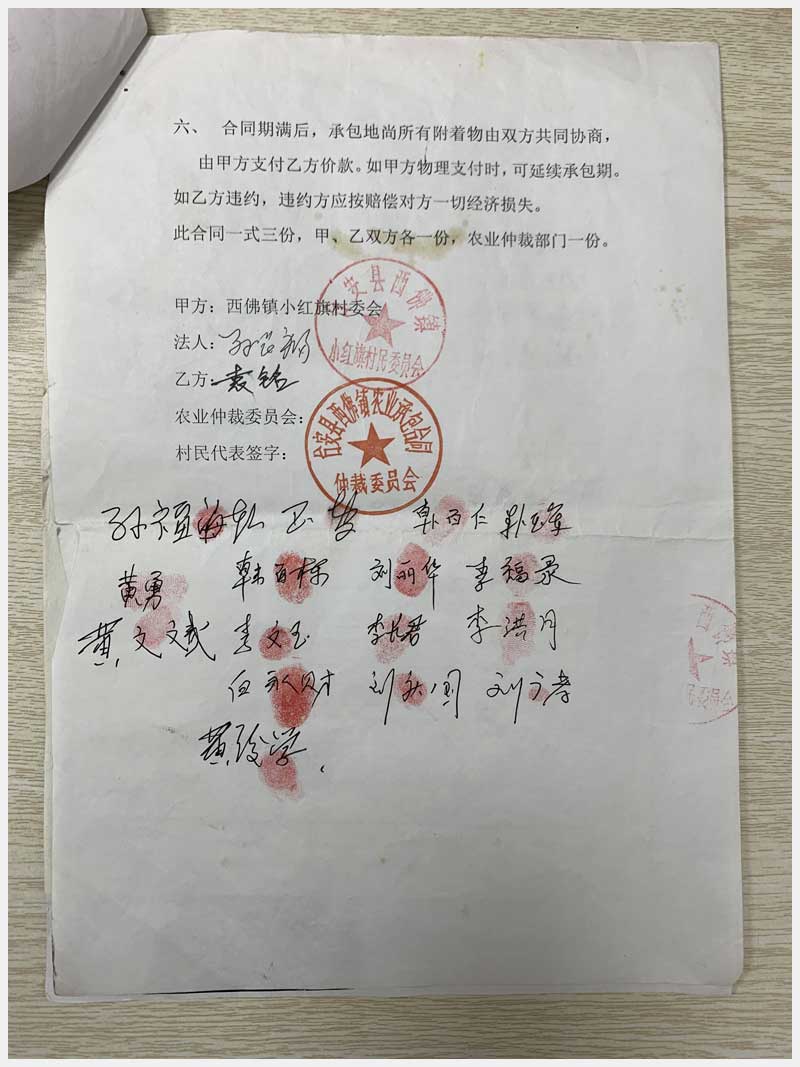 六、 合同期满后，承包地尚所有附着物由双方共同协商，
由甲方支付乙方价款。如甲方物理支付时，可延续承包期。
如乙方违约，违约方应按赔偿对方一切经济损失。
此合同一式三份，甲、乙双方各一份，农业仲裁部门一份。
甲方：西佛镇小红旗村委会
安县西佛镇
小红旗村民委员会
法人：
乙方：袁铭
农业仲裁委员会：
台安县西佛镇农业承包合同
仲裁委员会
村民代表签字：
韩百仁
黄勇 韩百栋 刘丽华 李福录
黄文斌 李文玉 李长君 李洪月
白永财 刘 国 刘 孝
黄俊学
西佛镇
民委员会